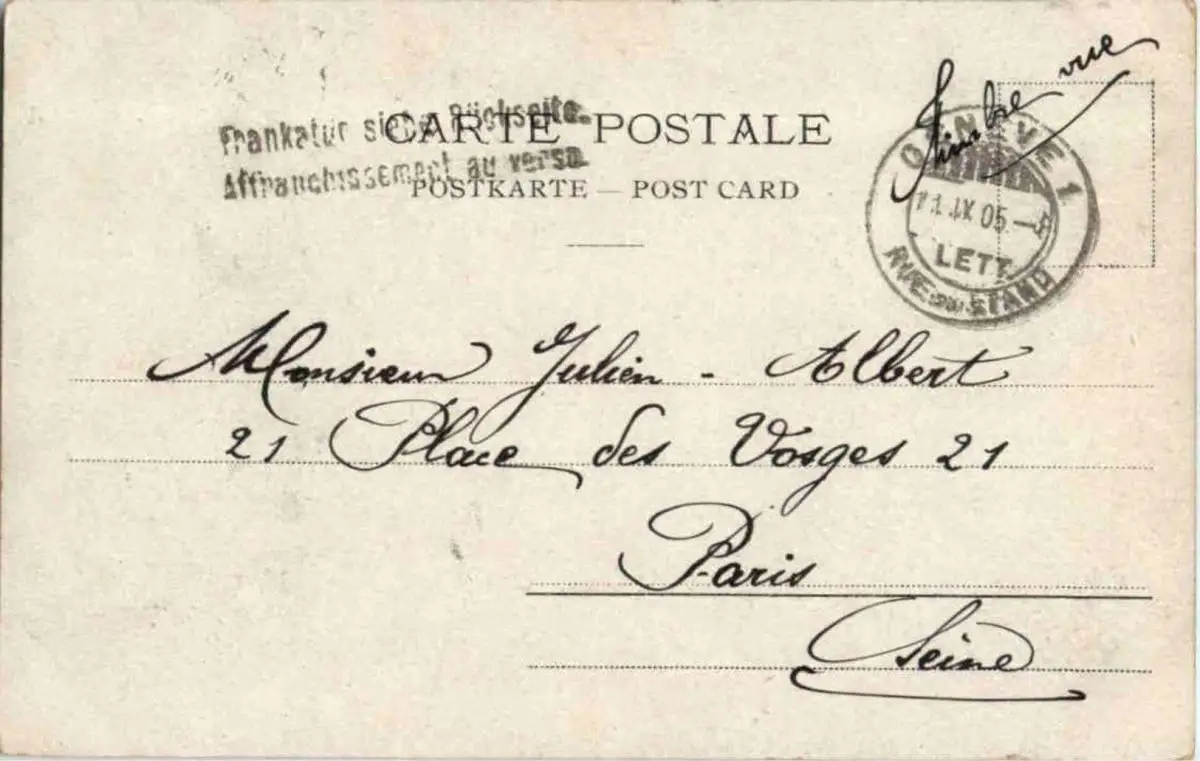 Frankatur siehe Rückseite.
Affranchissement au verso.
CARTE POSTALE
POSTKARTE — POST CARD
Timbre vue
GENÈVE 1
11 IX 05 – 5
LETT.
RUE DU STAND
Monsieur Julien - Albert
21 Place des Vosges 21
Paris
Seine